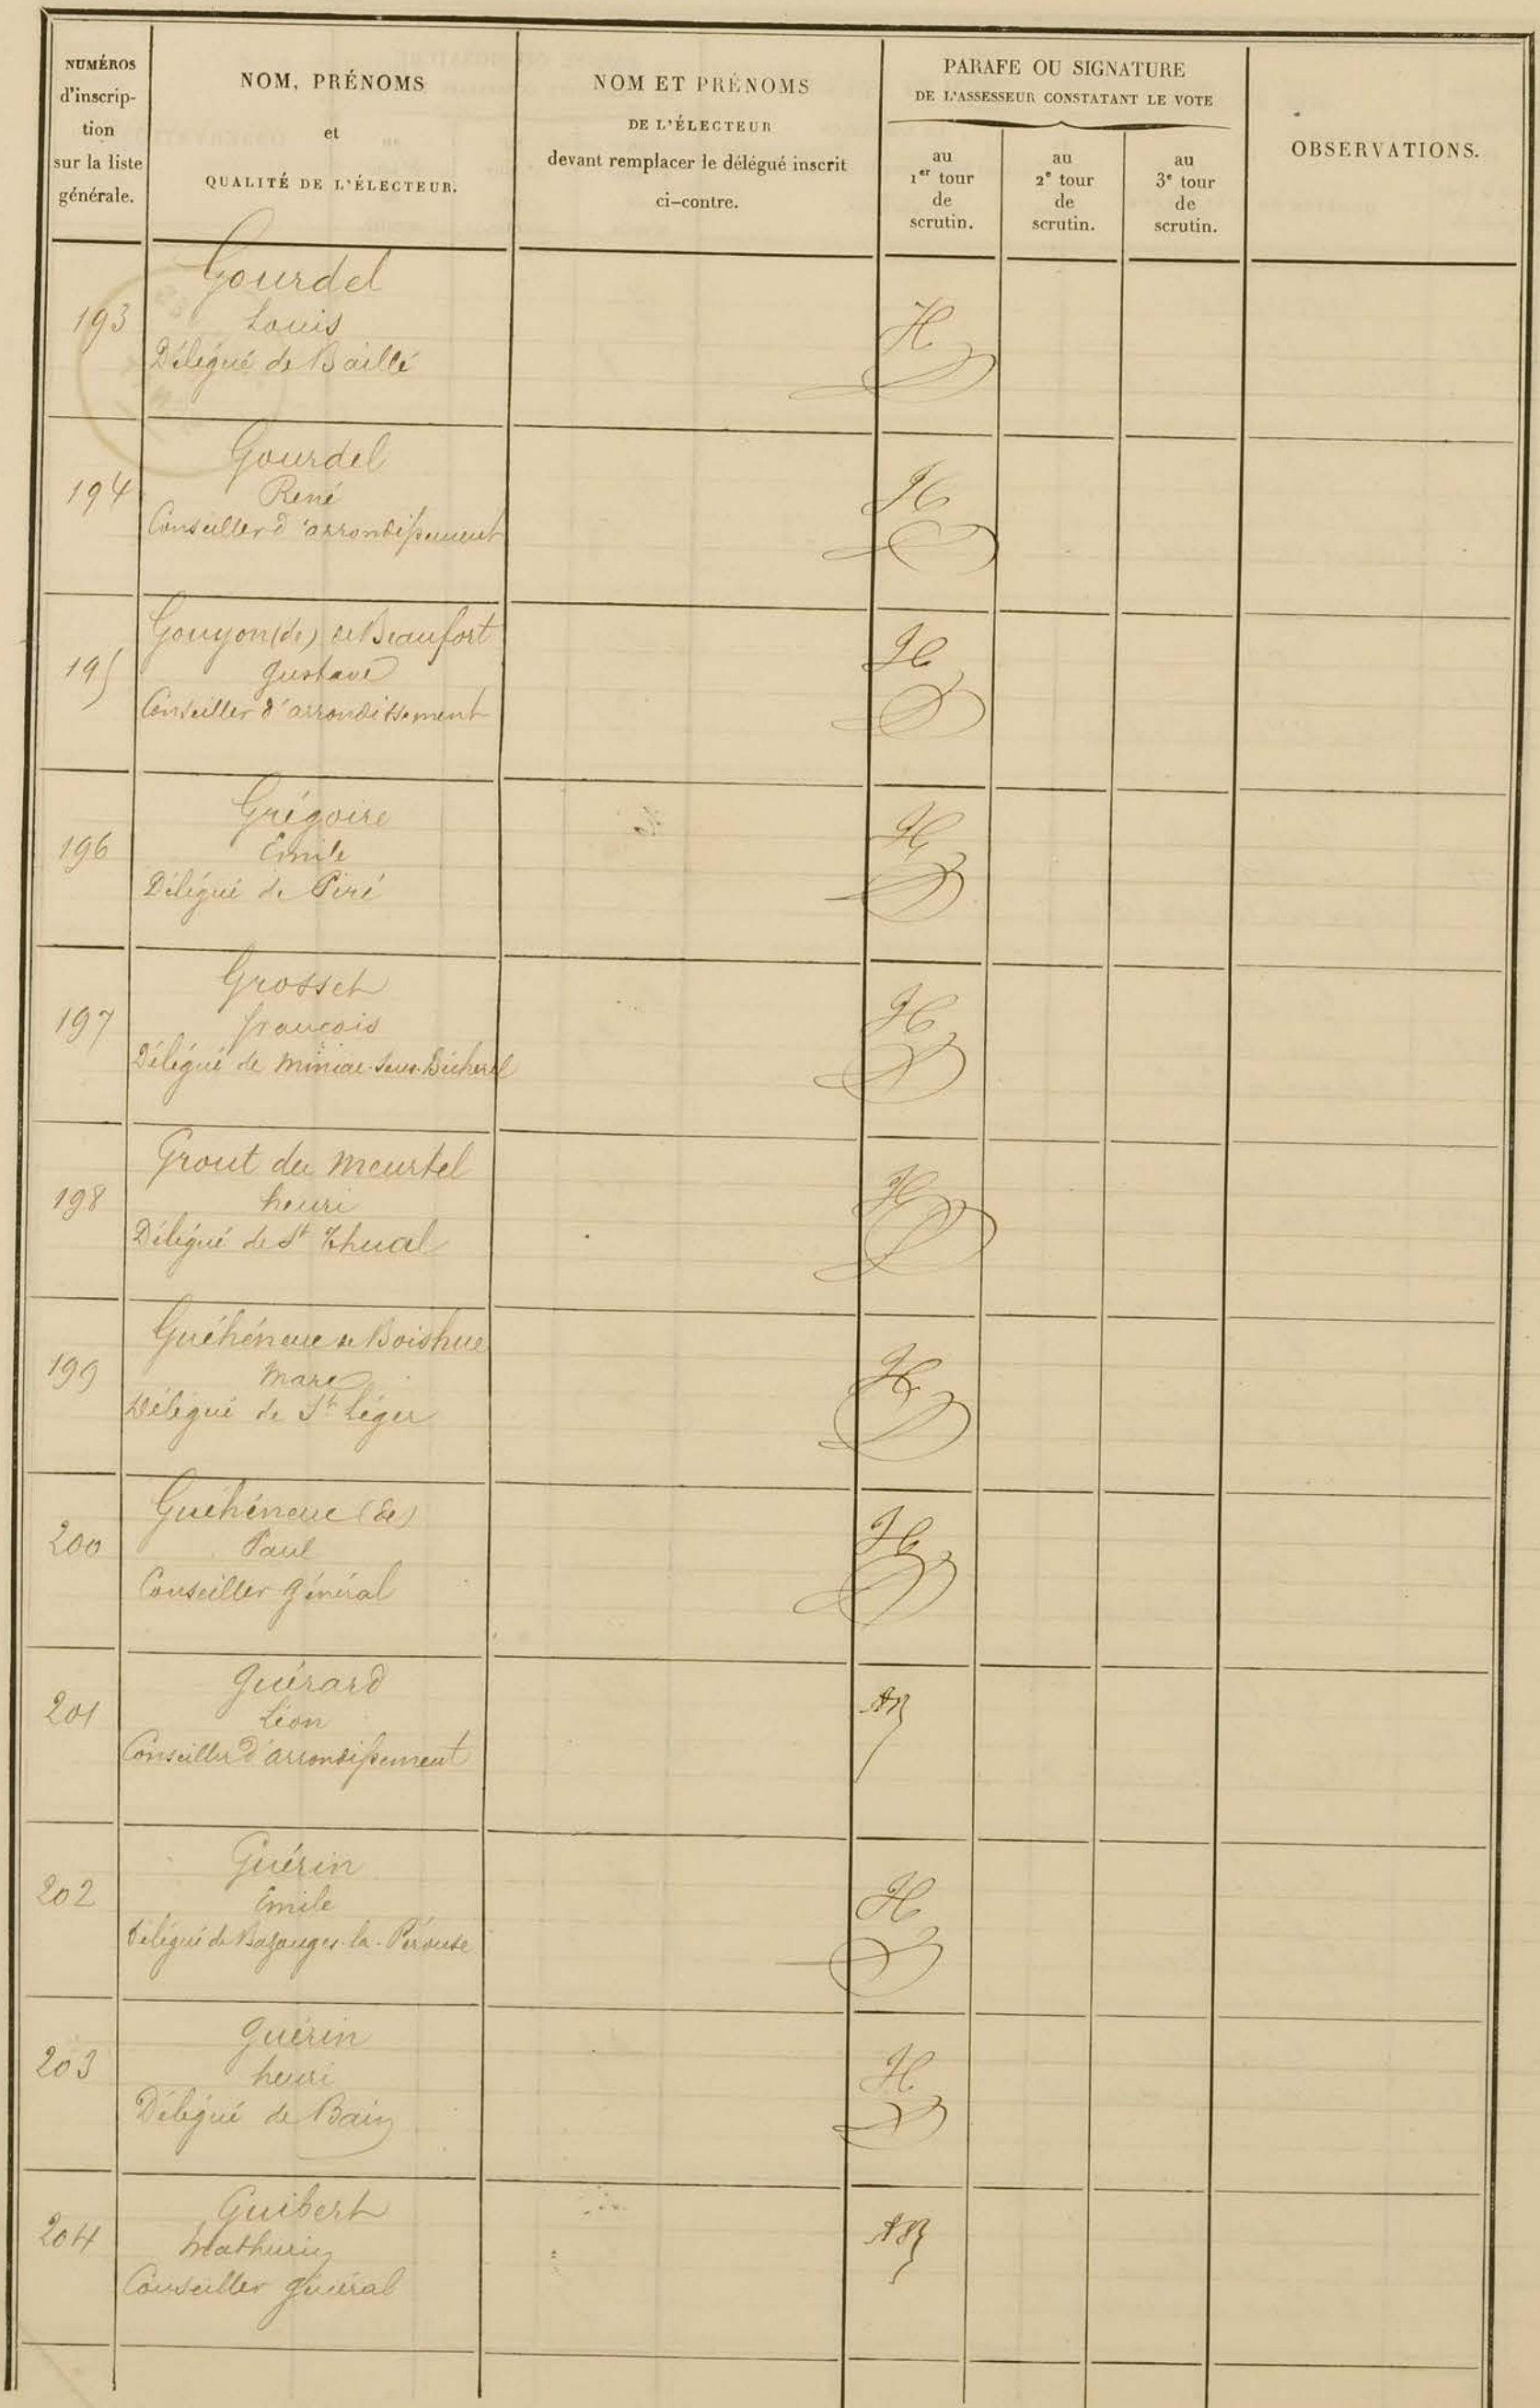 NUMÉROS
d'inscrip-
tion
sur la liste
générale.
NOM, PRÉNOMS
et
QUALITÉ DE L'ÉLECTEUR.
NOM ET PRÉNOMS
DE L'ÉLECTEUR
devant remplacer le délégué inscrit
ci-contre.
PARAFE OU SIGNATURE
DE L'ASSESSEUR CONSTATANT LE VOTE
au
1er tour
de
scrutin.
au
2e tour
de
scrutin.
au
3e tour
de
scrutin.
OBSERVATIONS.
Gourdel
193
Louis
H
Délégué de Baillé
Gourdel
194
René
H
Conseiller d'arrondissement
Gouyon (de) de Beaufort
195
Gustave
H
Conseiller d'arrondissement
Grégoire
196
Emile
H
Délégué de Piré
Grosset
197
françois
H
Délégué de Miniac-sous-Bécherel
Grout du Meurtel
198
henri
H
Délégué de St Thual
Guéhéneuc de Boishue
199
Marc
H
Délégué de St Léger
Guéhéneuc (de)
200
Paul
H
Conseiller Général
Guérard
201
Léon
Conseiller d'arrondissement
Guérin
202
Emile
H
Délégué de Bazouges-la-Pérouse
Guérin
203
henri
H
Délégué de Bain
Guibert
204
Mathurin
Conseiller général